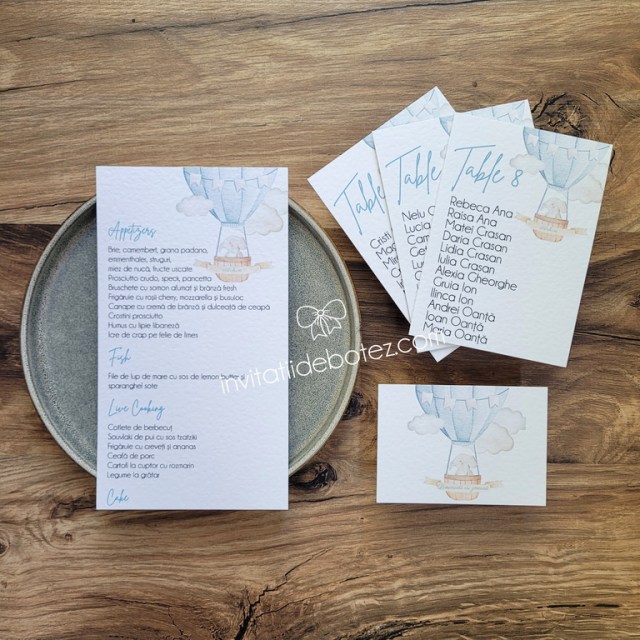 Appetizers
Brie, camembert, grana padano,
emmenthaler, struguri,
miez de nucă, fructe uscate
Prosciutto crudo, speck, pancetta
Bruschette cu somon afumat și brânză fresh
Frigărui cu roșii cherry, mozzarella și busuioc
Canape cu cremă de brânză și dulceată de ceapă
Crostini prosciutto
Humus cu lipie libaneză
Icre de crap pe felie de limes
Fish
File de lup de mare cu sos de lemon butter și
sparanghel sote
Live Cooking
Cotlete de berbecuț
Souvlaki de pui cu sos tzatziki
Frigăruie cu creveți și ananas
Ceafă de porc
Cartofi la cuptor cu rozmarin
Legume la grătar
Cake
Table
Cristi
Table
Nelu
Lucia
Table 8
Rebeca Ana
Raisa Ana
Matei Crasan
Daria Crasan
Lidia Crasan
Iulia Crasan
Alexia Gheorghe
Gruia Ion
Ilinca Ion
Andrei Oanță
Ioan Oanță
Maria Oanță
invitatiidebotez.com